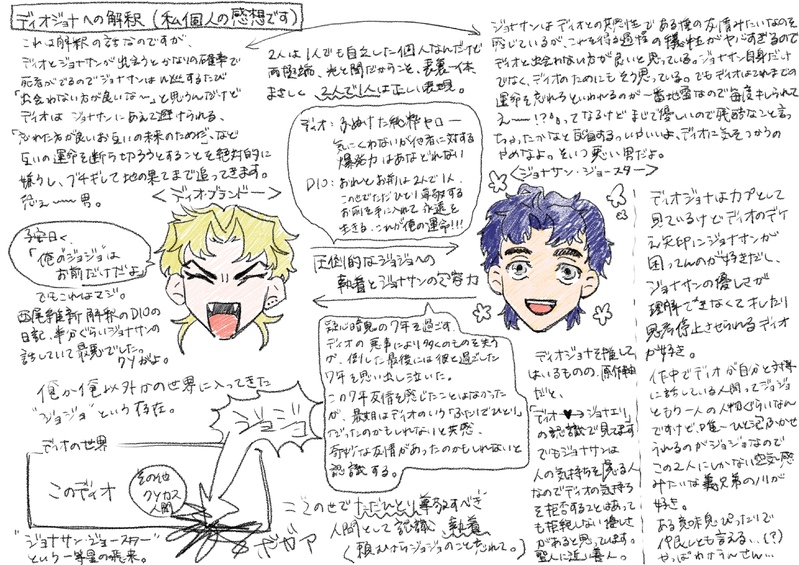 ディオジョナへの解釈(私個人の感想です)
これは解釈の話なのですが、
ディオとジョナが出会うとかないの確率で
死者がでるのでジョナサンは
「出会わない方が良いな〜」と思うんだけど
ディオはジョナサンにあえて避けられる、
「忘れた方が良いお互いの未来のためだ」など
互いの運命を断ち切ろうとすることを絶対的に
嫌うし、ブチギレて地の果てまで追ってきます。
男。
<ディオ・ブランドー>
2人は1人でも自立した個人なんだけど
両極端、光と闇だからこそ、表裏一体、
まさしく2人で1人は正しい表現。
ディオ:ふぬけた純粋ヤロー
気にくわないが他者に対する
爆発力はあなどれない
DIO:おれとお前は2人で1人、
この世でただひとり尊敬する
お前を手に入れて永遠を
生きる、これが俺の運命!!!
ジョナサンはディオとの
感じているが、これを得る過程の犠牲がヤバすぎるので
ディオと出会わない方が良いと思っている。ジョナサン自身だけ
でなく、ディオのためにもそう思っている。でもディオはこれまでの
運命を忘れろといわれるのが一番地雷なので毎度キレられて
え〜!?ってなるけどまして優しいので残酷なこと言っ
ちゃったかなと反省するいやいいよ、ディオに気をつかうの
やめなよ。という
<ジョナサン・ジョースター>
曰く
「俺のジョジョは
お前だけだよ」
でもこれはマジ。
西尾維新解釈のDIOの
日記、半分ぐらいジョナサンの
話していて最悪でした。
クソがよ。
圧倒的なジョジョへの
執着とジョナサンの包容力
疑心暗鬼の7年を過ごす、
ディオの悪事により多くのものを失う
が、倒した最後には彼と過ごした
7年を思い出し泣いた。
この7年友情を感じたことはなかった
が、最期はディオのいう「ふたりでひとり」
だったのかもしれないと共感、
奇妙な友情があったのかもしれないと
認識する。
俺が俺以外なの世界に入ってきた
"ジョジョ"という存在。
ディオの世界
このディオ
その他
クソカス
人間
ジョジョ
ボガア
"ジョナサン・ジョースター"
という一等星の飛来。
この世でただひとり尊敬すべき
人間として認識、執着
(頼むからジョジョのこと忘れて。)
ディオジョナを推して
はいるものの、原作軸
だと、
「ディオ♥→ジョナ
の認識で見てます
でもジョナサンは
人の気持ちを人
なのでディオの気持ち
を拒否することはあって
も拒絶しない優しさ
があると思っています。
聖人に近い善人。
ディオジョナはカプとして
見ているけどディオのデケ
え矢印にジョナサンが
困ってんのが好きだし、
ジョナサンの優しさが
理解できなくてキレたり
思考停止させられるディオ
が好き。
作中でディオが自分と対等
に話している人間ってジョジョ
ともう一人の人物ぐらいなん
ですけど、唯一ひと
うれるのがジョジョなので
この2人にしかない空気感
みたいな義兄弟のノリが
好き。
ある意味息ぴったりで
仲良しとも言える…(?)
やっぱわかう〜せん…